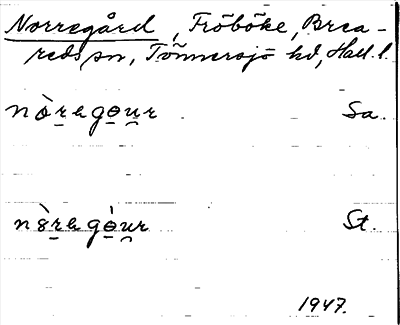 Norregård, Fröböke, Brea-
reds sn, Tönnersjö hd, Hall. l.
nòr̲egɵ̲u̯r Sa.
n8̀r̲egɵ̲̀u̯r St.
1947.